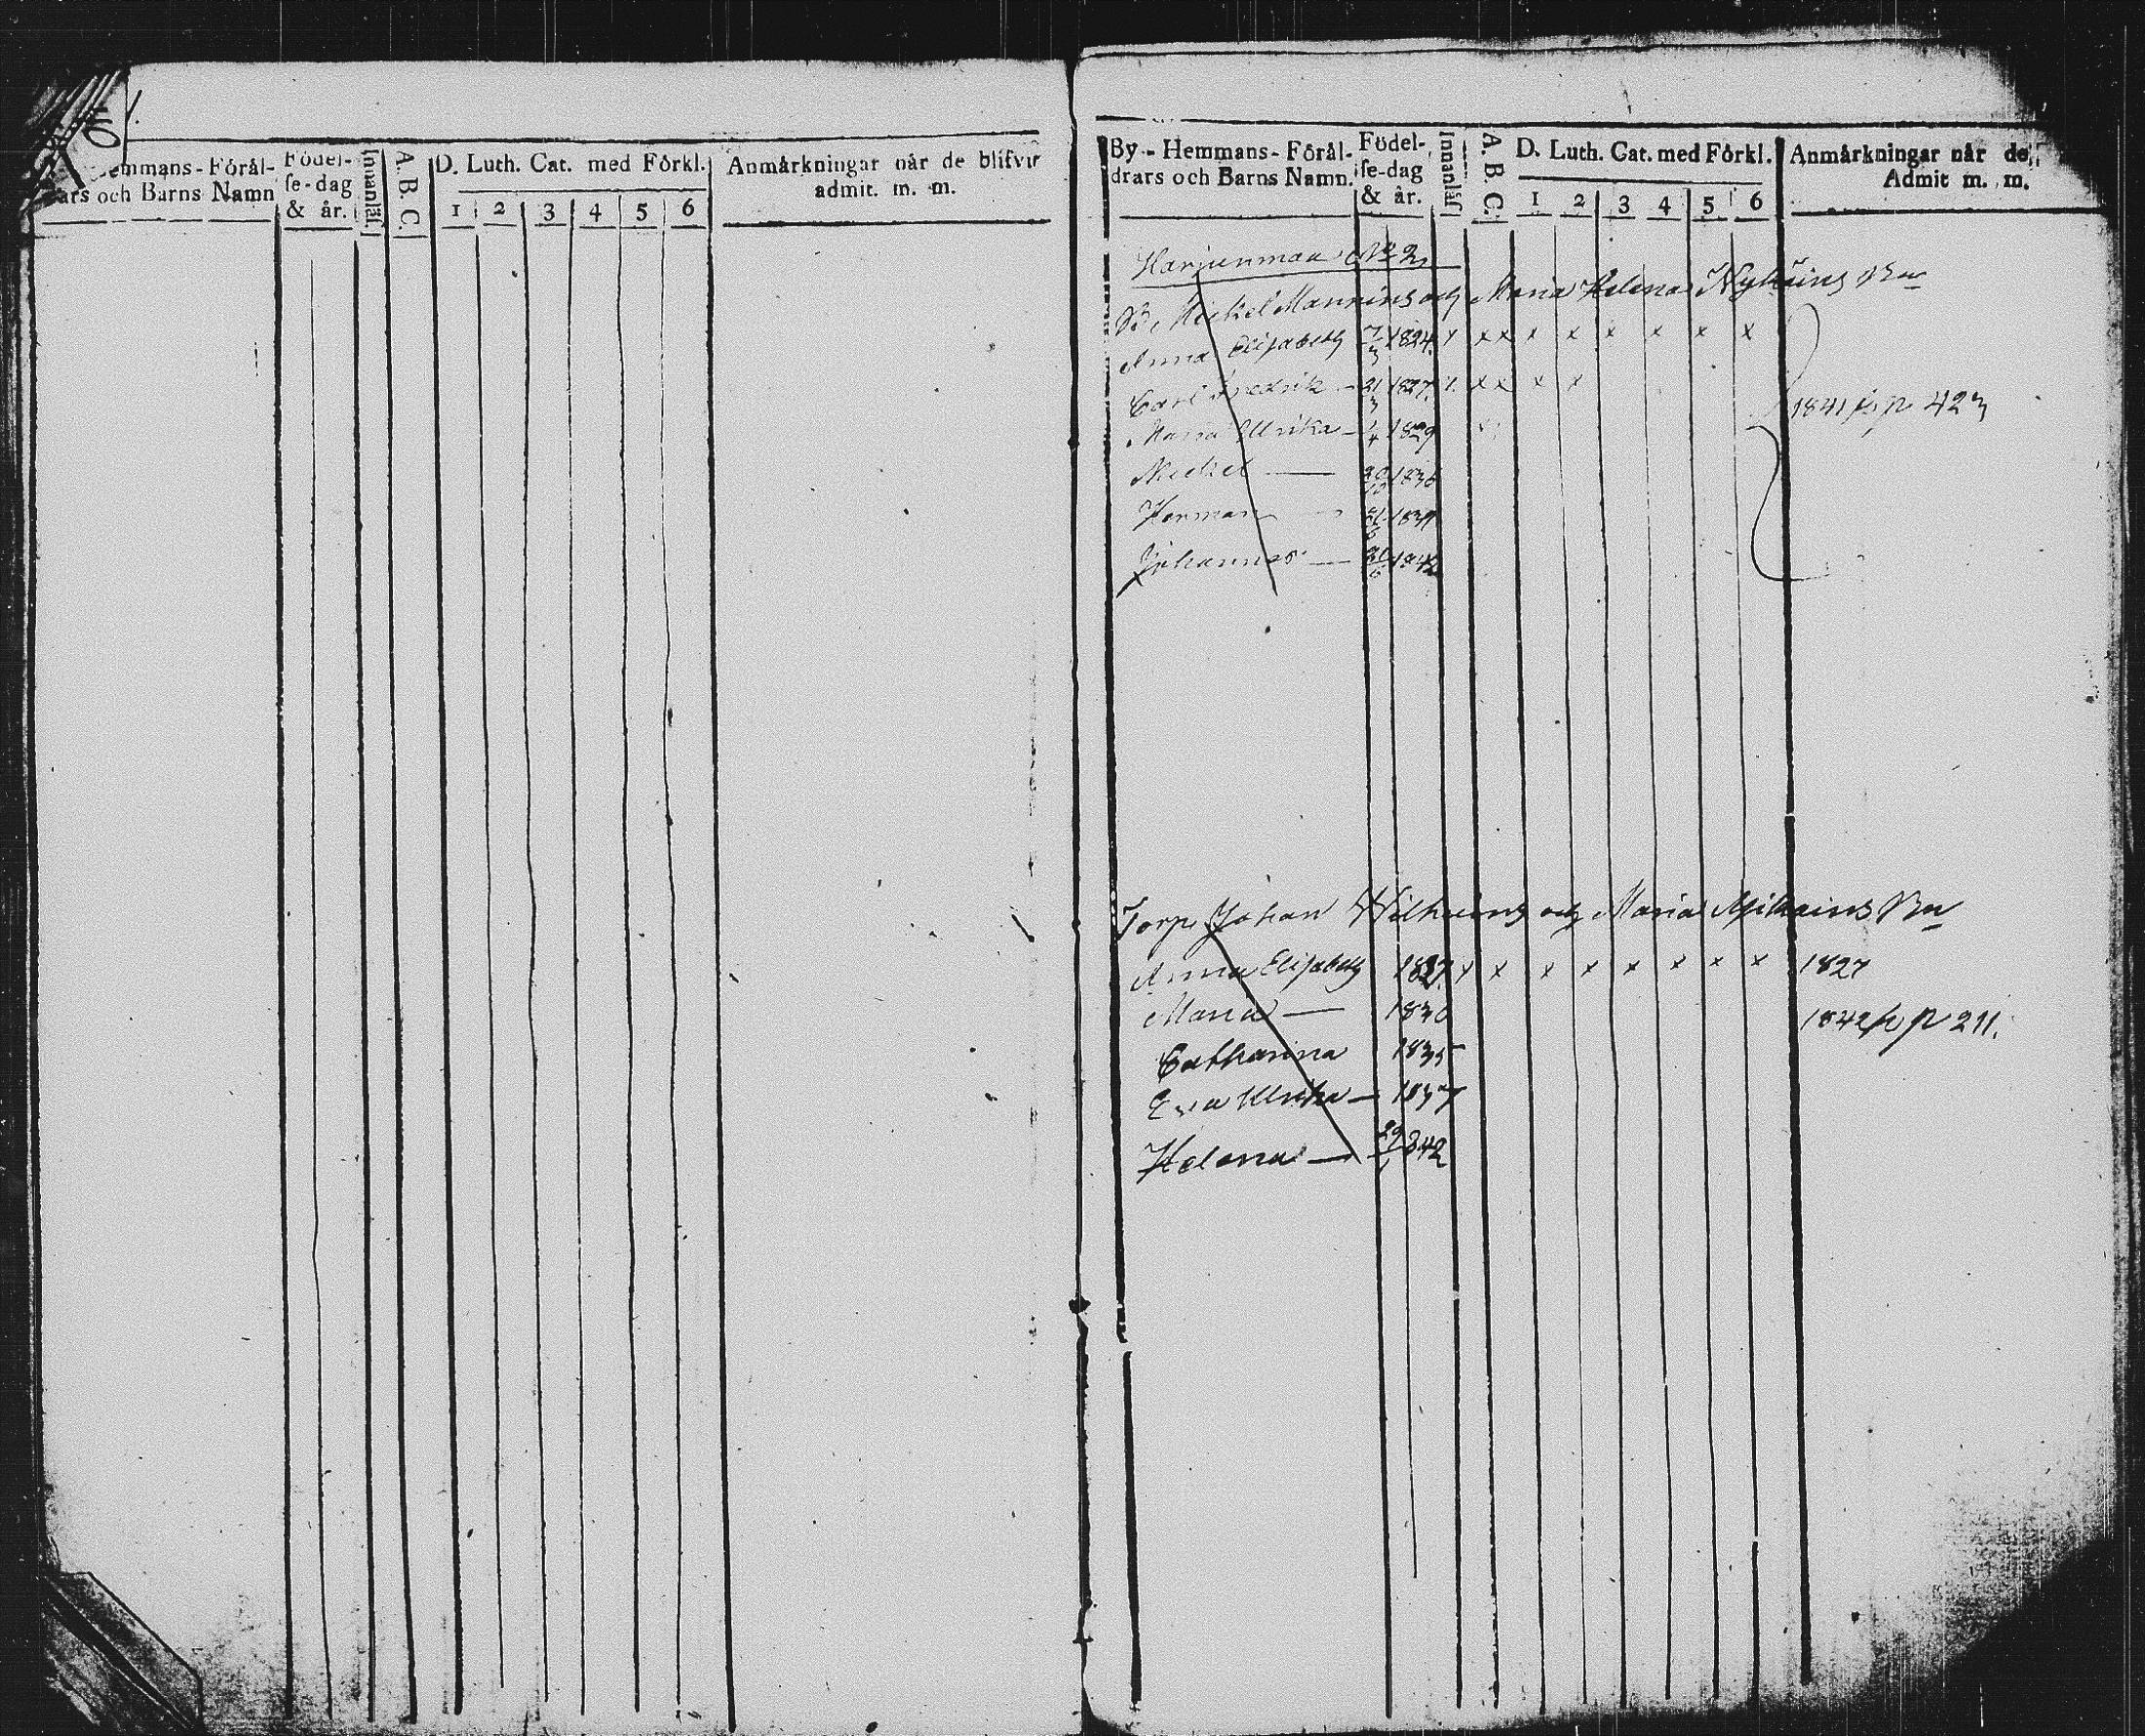 Hemmans-Förål-
rars och Barns Namn
Födel-
se-dag
& år.
Innanläs.
A. B. C.
D. Luth. Cat. med Förkl.
1 2 3 4 5 6
Anmårkningar når de blifvit
admit. m. m.
By-Hemmans-Förål-
drars och Barns Namn.
Födel-
se-dag
& år.
Innanläs.
A. B. C.
D. Luth. Cat. med Förkl.
1 2 3 4 5 6
Anmårkningar når de
Admit m. m.
Harjunmaa No 2
B. Michel och Maria Helena Bn
Anna Elisabeth 7/3 1824. x x x x x x x x x
Carl Fredrik 21/3 1827. x x x x
1841 p 423
Maria Ullrika — 1/4 1829
Michel —
Herman —
Johannes —
Torp. Johan och Maria Bn
Anna Elisabeth 1827. x x x x x x x x 1827
Maria — 1830
1842 p 211.
Catharina 1835
Eva Ulrika — 1837
Helena — 842